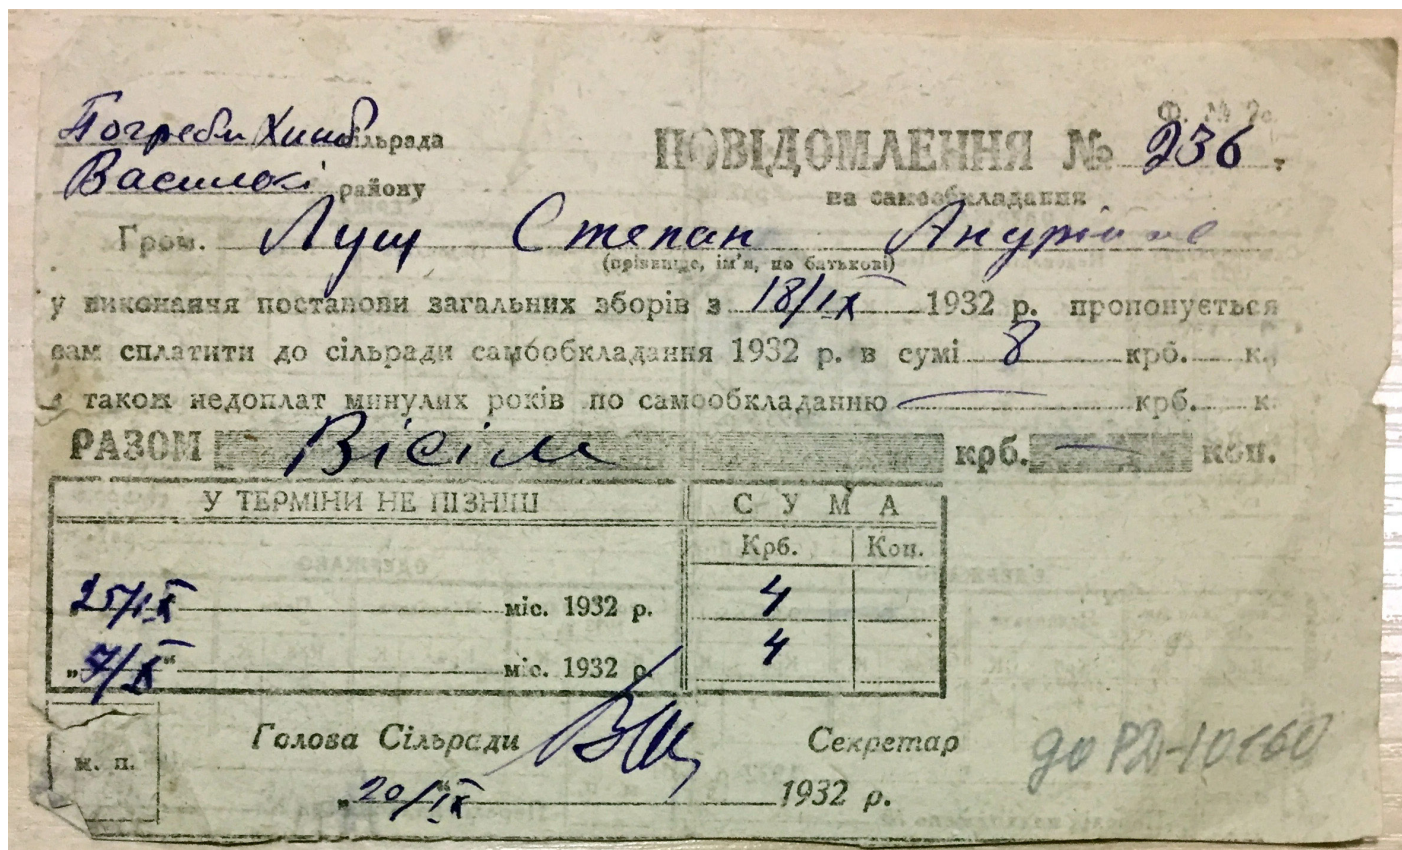 Погреби сільрада
Ф. №
ПОВІДОМЛЕННЯ № 236.
району
на самообкладання
Гром. Лущ Степан
(прізвище, ім'я, по батькові)
у виконання постанови загальних зборів з 18/IX 1932 р. пропонується
вам сплатити до сільради самообкладання 1932 р. в сумі 8 крб. к.
а також недоплат минулих років по самообкладанню — крб. к.
РАЗОМ Вісім крб. — коп.
У ТЕРМІНИ НЕ ПІЗНІШ
СУМА
Крб. Коп.
„25/IX міс. 1932 р. 4
„7/X“ міс. 1932 р. 4
Голова Сільради
Секретар
м. п.
до Р2-10160
„20/IX“ 1932 р.